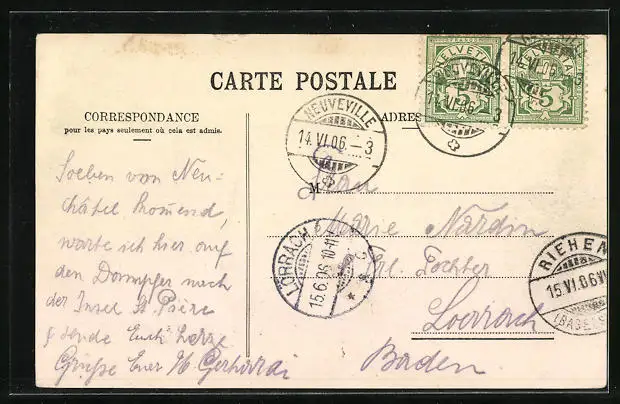 CARTE POSTALE
CORRESPONDANCE
pour les pays seulement où cela est admis.
ADRES
HELVETIA
5
5
NEUVEVILLE
14.VI.06.–3
M
Soeben von Neu-
châtel kommend,
warte ich hier auf
den Dampfer nach
der Insel St. Pierre
& sende Euch herzl.
Grüsse Euer
Frau
Marie Nardin
Frl. Tochter
Loerrach
Baden
LÖRRACH
15.6.06.10-11
RIEHEN
15.VI.06
(BASEL